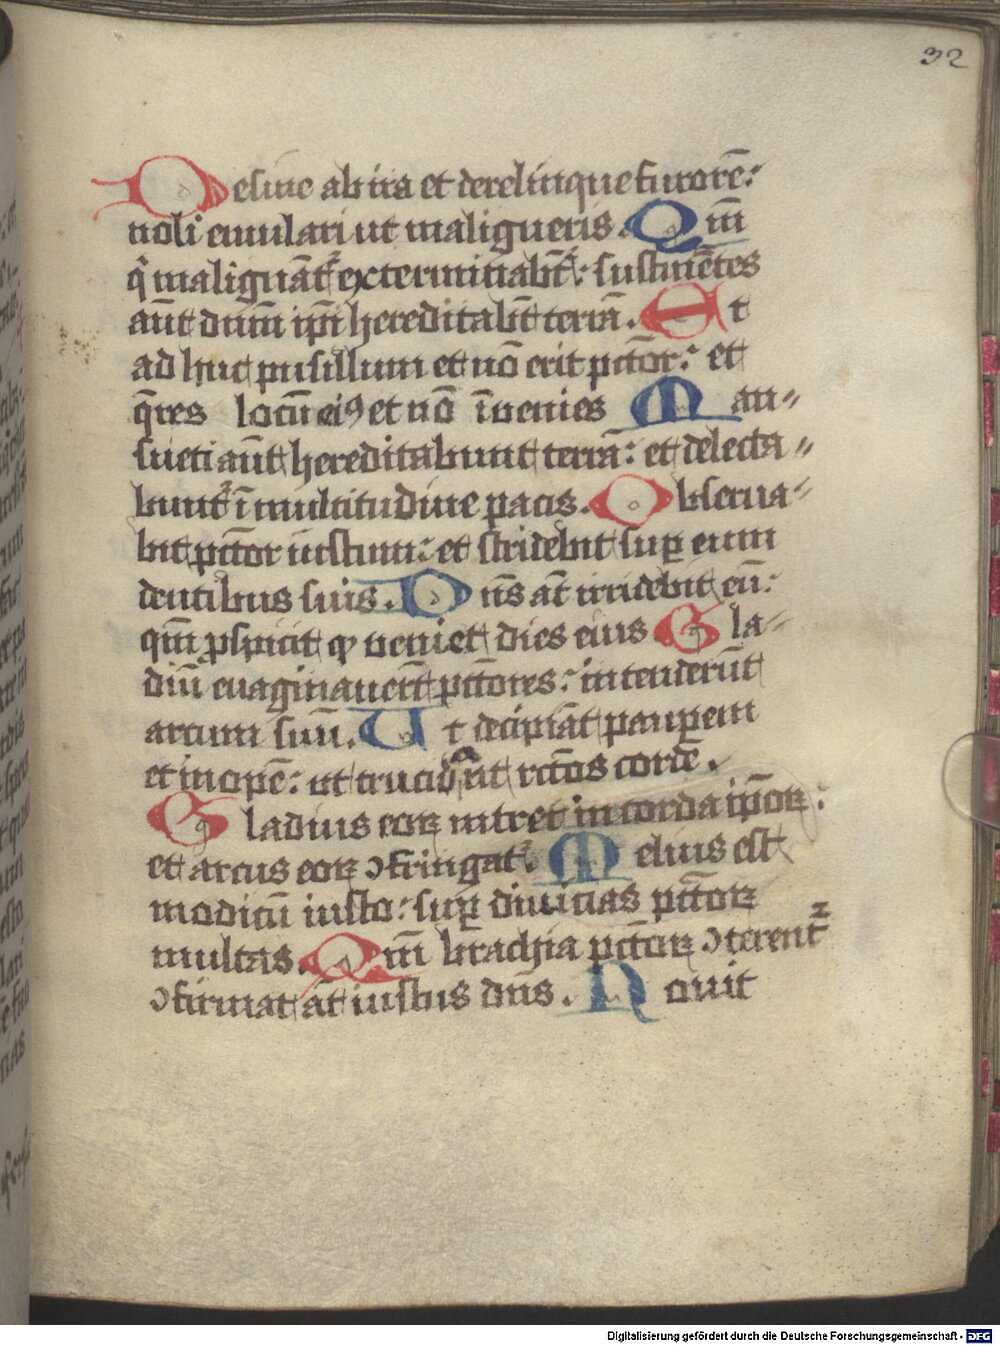 32
Desine ab ira et derelinque furorē:
noli emulari ut maligneris. Qm̄
q̄ malignāt᷑ exterminabūt᷑: sustinētes
aūt dnm̄ ip̄i hereditabūt terrā. Et
ad huc pusillum et nō erit pctōr: et
q̄res locū eiꝰ et nō īuenies Man-
sueti aūt hereditabunt terrā: et delecta-
bunt᷑ ī multitudine pacis. Obserua-
bit pctōr iustum: et stridebit sup̱ eum
dentibus suis. Dn̄s at̄ irridebit eū:
qm̄ ꝓspicit ꝙ ueniet dies eius Gla-
diū euaginauerūt pctōres: intenderūt
arcum suū. Ut decipiāt paup̱em
et inopē: ut trucidēnt rectos corde.
Gladius eoꝝ intret in corda ip̄oꝝ:
et arcus eoꝝ ꝯfringat᷑. Melius est
modicū iusto: sup̱ diuicias pctōꝝ
multas. Qm̄ brachia pctōꝝ ꝯterent᷑
ꝯfirmat at̄ iustus dn̄s. Nouit
Digitalisierung gefördert durch die Deutsche Forschungsgemeinschaft - DFG